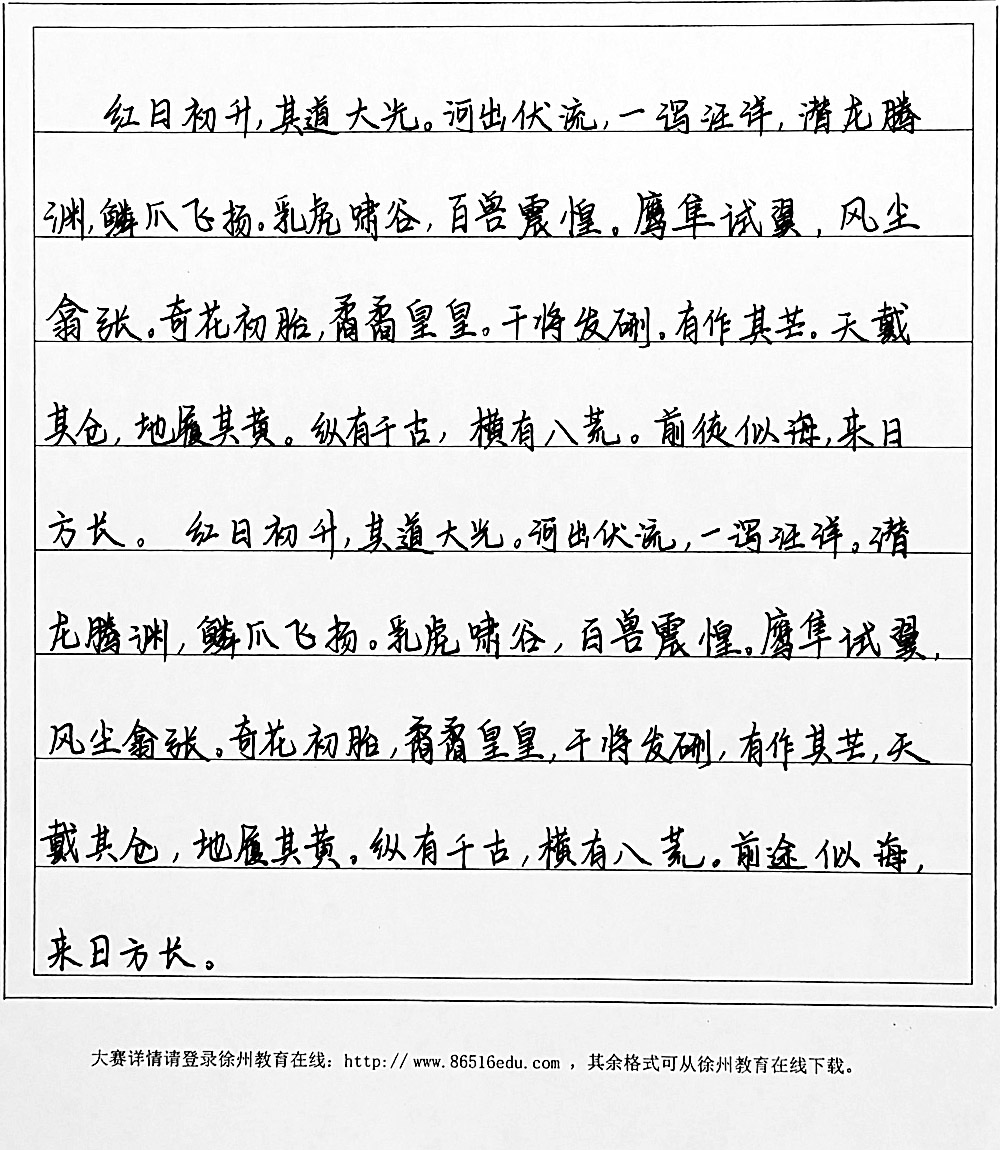 红日初升,其道大光。河出伏流,一泻汪洋,潜龙腾
渊,鳞爪飞扬。乳虎啸谷,百兽震惶。鹰隼试翼,风尘
翕张。奇花初胎,矞矞皇皇。干将发硎。有作其芒。天戴
其仓,地履其黄。纵有千古,横有八荒。前徒似海,来日
方长。 红日初升,其道大光。河出伏流,一泻汪洋。潜
龙腾渊,鳞爪飞扬。乳虎啸谷,百兽震惶。鹰隼试翼,
风尘翕张。奇花初胎,矞矞皇皇,干将发硎,有作其芒,天
戴其仓,地履其黄。纵有千古,横有八荒。前途似海,
来日方长。
大赛详情请登录徐州教育在线:http://www.86516edu.com ,其余格式可从徐州教育在线下载。